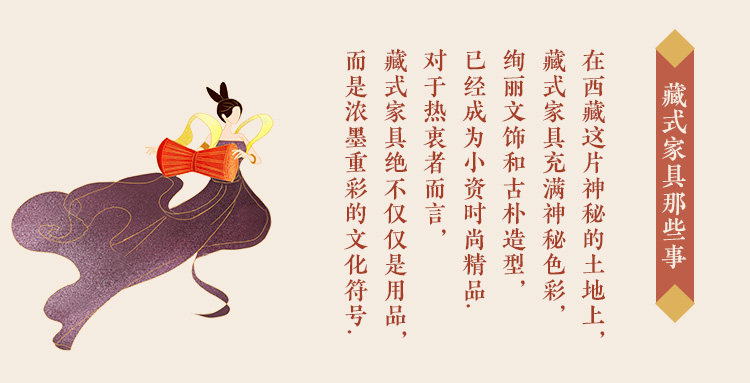 藏式家具那些事
在西藏这片神秘的土地上，
藏式家具充满神秘色彩，
绚丽文饰和古朴造型，
已经成为小资时尚精品.
对于热衷者而言，
藏式家具绝不仅仅是用品，
而是浓墨重彩的文化符号.